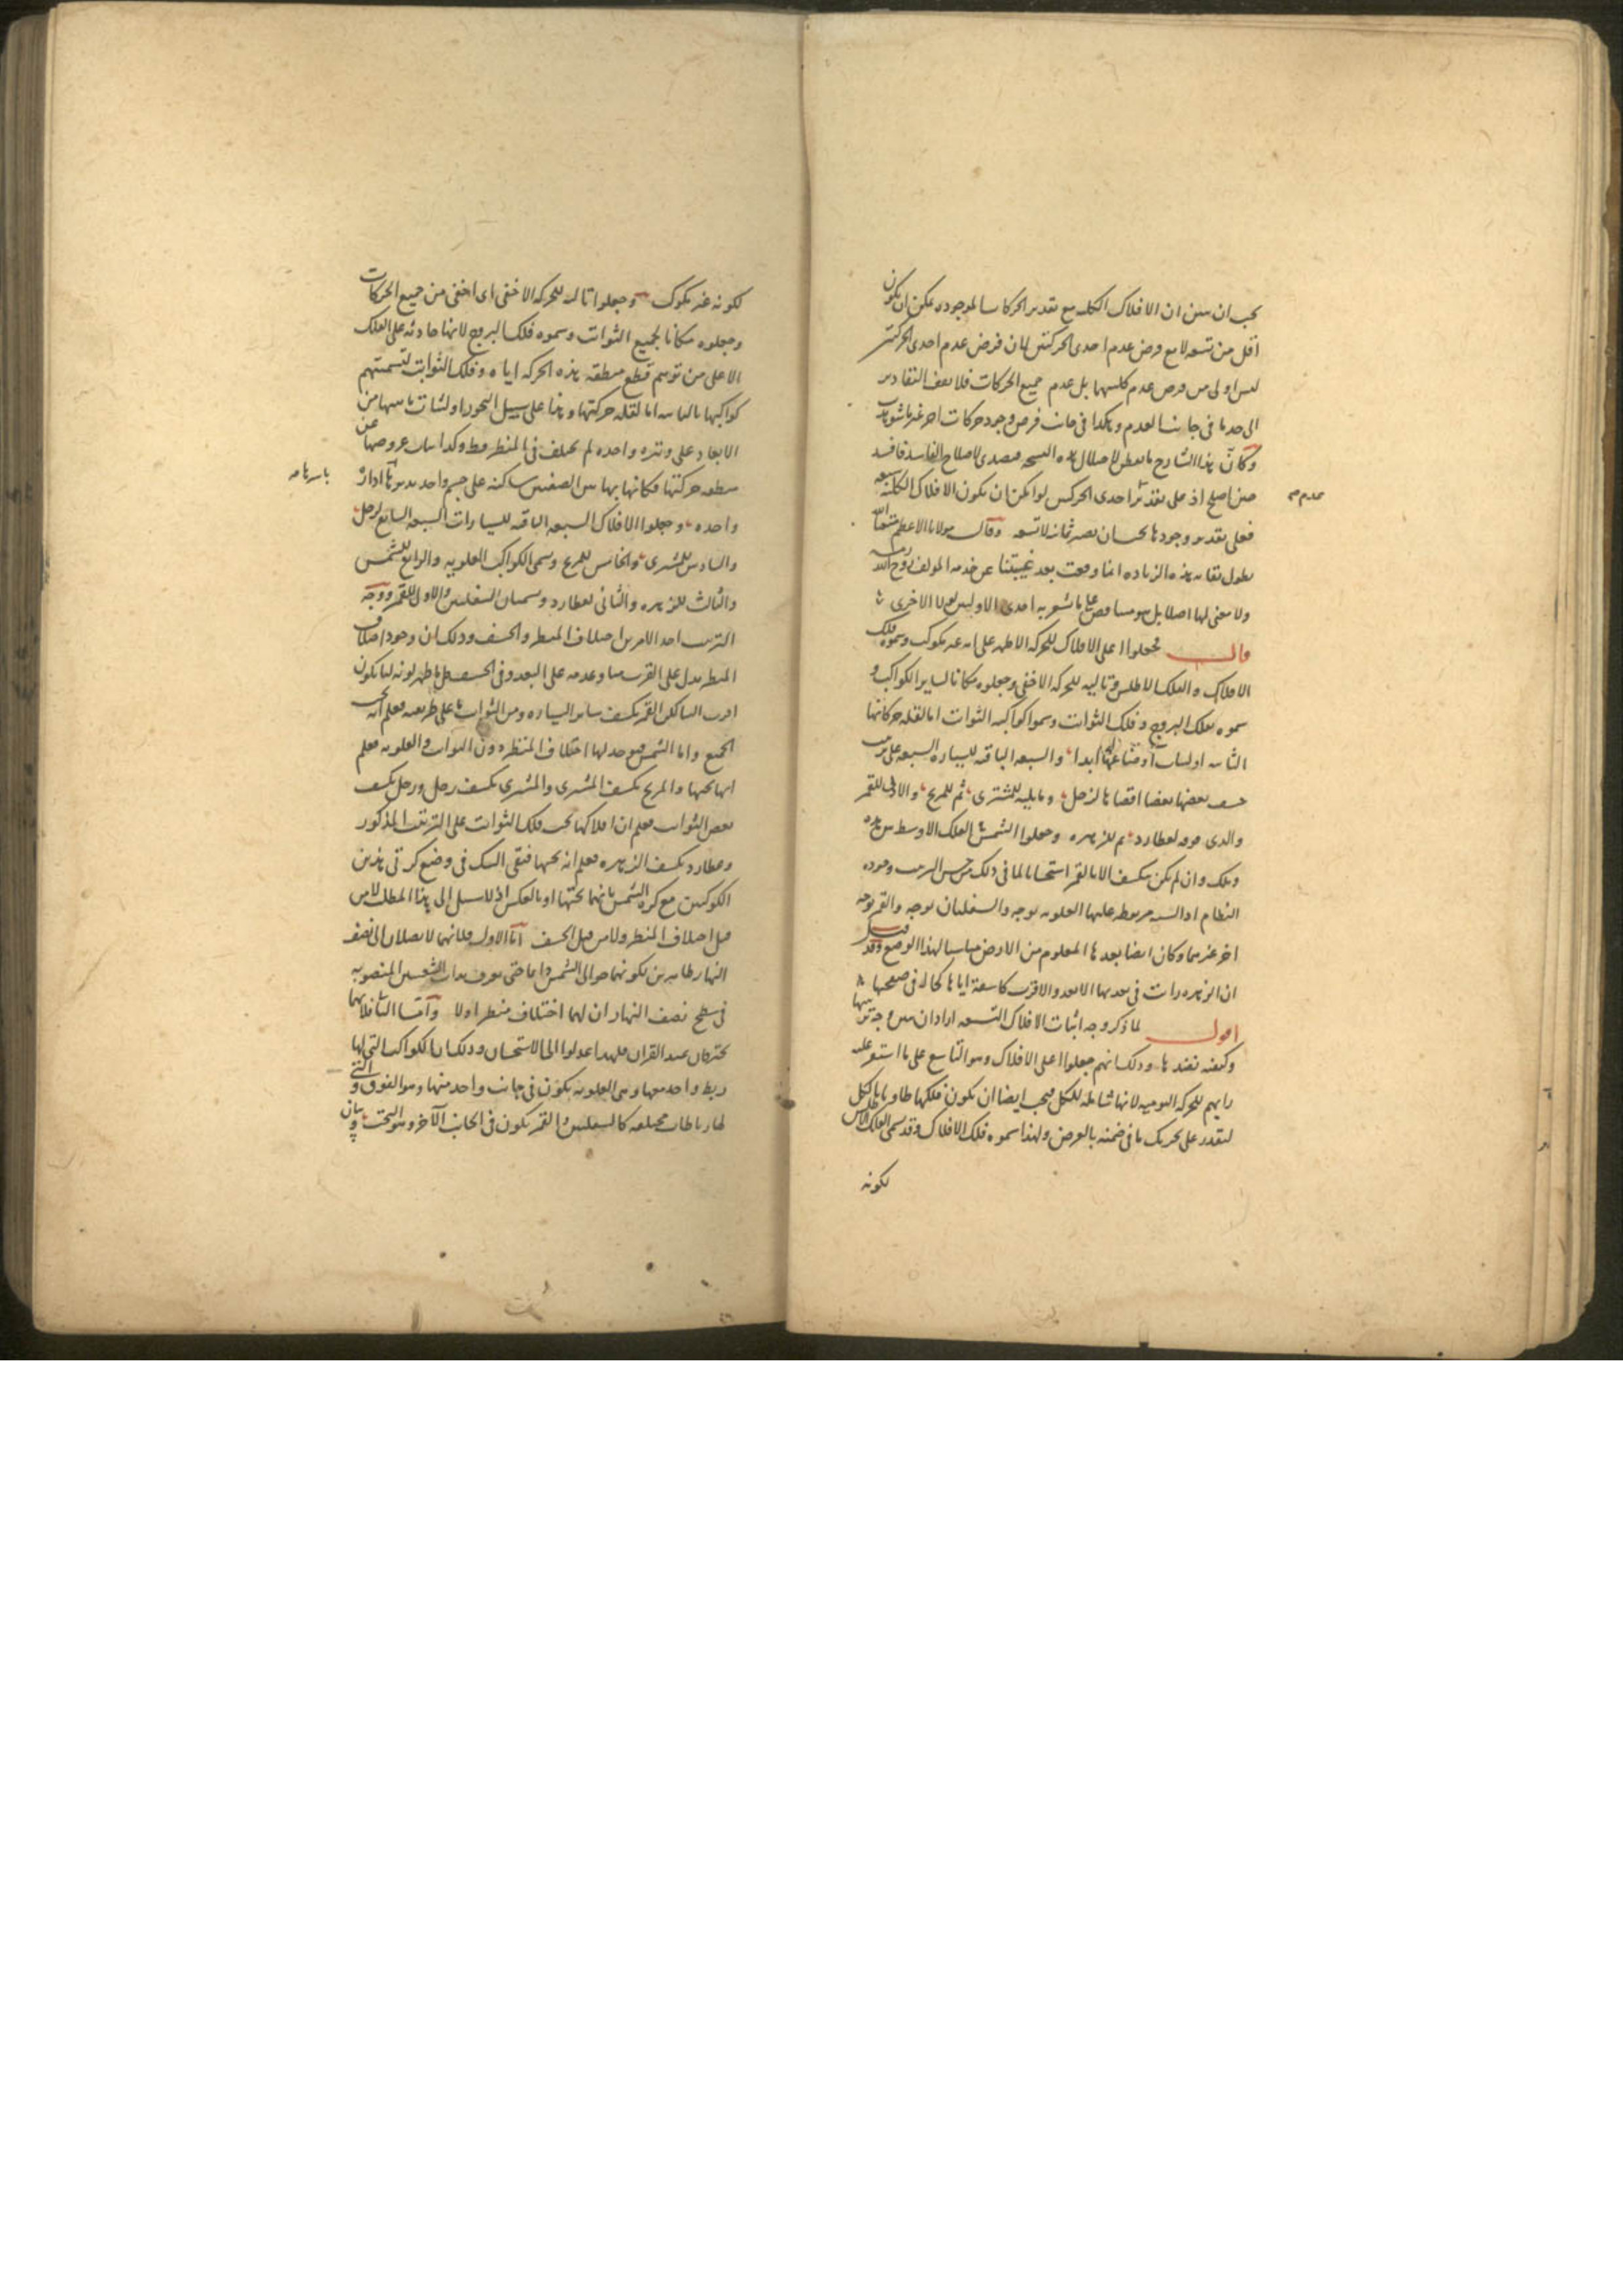 يجب ان يبين ان الافلاك الكلية مع تقدير الحركات الموجودة يمكن ان يكون
اقل من تسعة لا مع فرض عدم احدى الحركتين لان فرض عدم احدى الحركتين
ليس اولى من فرض عدم كلتيهما بل عدم جميع الحركات فلا يقف التقادير
الى حد ما فى جانب العدم وهكذا فى جانب فرض وجود حركات اخر غير ما شوهدت
وكأن هذا الشارح ما تفطن لاختلال هذه النسخة فتصدى لاصلاح الفاسد فافسد
حين اصلح اذ على تقدير احدى الحركتين لو امكن ان تكون الافلاك الكلية سبعة
عدم صح
فعلى تقدير وجودها يجب ان يصير ثمانية لا تسعة وقال مولانا الاعظم متعنا الله
بطول بقائه هذه الزيادة انما وقعت بعد غيبتنا عن خدمة المولف روح الله رمسه
ولا معنى لها اصلا بل هو مناقض على ما تشهد به احدى الاوليين لا الاخرى
قال فجعلوا اعلى الافلاك للحركة الاظهر على انه غير مكوكب وسموه فلك
الافلاك والفلك الاطلس وتاليه للحركة الاخفى وجعلوه مكانا لساير الكواكب و
سموه بفلك البروج وفلك الثوابت وسموا كواكبه الثوابت اما لقلة حركاتها
الثانية او لثبات اوضاعها ابدا والسبعة الباقية للسيارة السبعة على ترتيب
خسف بعضها بعضا اقصاها لزحل وما يليه للمشترى ثم للمريخ والادنى للقمر
والذى فوقه لعطارد ثم للزهرة وجعلوا الشمس الفلك الاوسط بين هذه
وتلك وان لم يكن تنكسف الا بالقمر استحسانا لما فى ذلك من حسن الترتيب وجودة
النظام اذ السته مربوطة عليها العلوية بوجه والسفليان بوجه والقمر بوجه
اخر غيرهما وكان ايضا بعدها المعلوم من الارض مناسبا لهذا الوضع وقد قيل
ان الزهرة رأت فى بعديها الابعد والاقرب كاسفة اياها كخال فى صفحتها
اقول لما ذكر وجه اثبات الافلاك التسعة اراد ان يبين وجه ترتيبها
وكيفية نضدها وذلك انهم جعلوا اعلى الافلاك وهو التاسع على ما استقر عليه
رايهم للحركة اليومية لانها شاملة للكل فيجب ايضا ان يكون فلكها حاويا للكل
ليقدر على تحريك ما فى ضمنه بالعرض ولهذا سموه فلك الافلاك وقد سمى الفلك الاطلس
لكونه
لكونه غير مكوكب وجعلوا تاليه للحركة الاخفى اى اخفى من جميع الحركات
وجعلوه مكانا لجميع الثوابت وسموه فلك البروج لانها حادثة على الفلك
الاعلى من توهم قطع منطقة هذه الحركة اياه وفلك الثوابت لتسميتهم
كواكبها بالثابتة اما لقلة حركتها وهذا على سبيل التجوز او لثبات ما بينها من
الابعاد على وتيرة واحدة لم يختلف فى المنظر قط وكذا ثبات عروضها عن
منطقة حركتها فكانها بهاتين الصفتين ساكنة على جسم واحد يديرها ادارة
باسرها صح
واحدة وجعلوا الافلاك السبعة الباقية للسيارات السبعة السابع لزحل
والسادس للمشترى والخامس للمريخ وسمى الكواكب العلوية والرابع للشمس
والثالث للزهرة والثانى لعطارد وتسميان السفليين والاول للقمر ووجه
الترتيب احد الامرين اختلاف المنظر والخسف وذلك ان وجود اختلاف
المنظر يدل على القرب منا وعدمه على البعد وفى الخسف كل ما ظهر لونه لنا يكون
اقرب الينا لكن القمر يكسف ساير السيارة ومن الثوابت ما على طريقته فعلم انه تحت
الجميع واما الشمس فيوجد لها اختلاف المنظر دون الثوابت والعلوية فعلم
انها تحتها والمريخ يكسف المشترى والمشترى يكسف زحل وزحل يكسف
بعض الثوابت فعلم ان افلاكها تحت فلك الثوابت على الترتيب المذكور
وعطارد يكسف الزهرة فعلم انه تحتها فبقى الشك فى وضع كرتى هذين
الكوكبين مع كرة الشمس بانهما تحتها او بالعكس اذ لا سبيل الى هذا المطلب لا من
قبل اختلاف المنظر ولا من قبل الخسف اما الاول فلانهما لا يصلان الى نصف
النهار ظاهرين لكونهما حوالى الشمس دايما حتى يعرف بذات الشعبتين المنصوبة
فى سطح نصف النهار ان لهما اختلاف منظر او لا واما الثانى فلانهما
يحترقان عند القران فلهذا عدلوا الى الاستحسان وذلك ان الكواكب التى لها
ربط واحد معها وهى العلوية يكون فى جانب واحد منها وهو الفوق والتى
لها رباطات مختلفة كالسفليين والقمر يكون فى الجانب الآخر وهو التحت وبيان